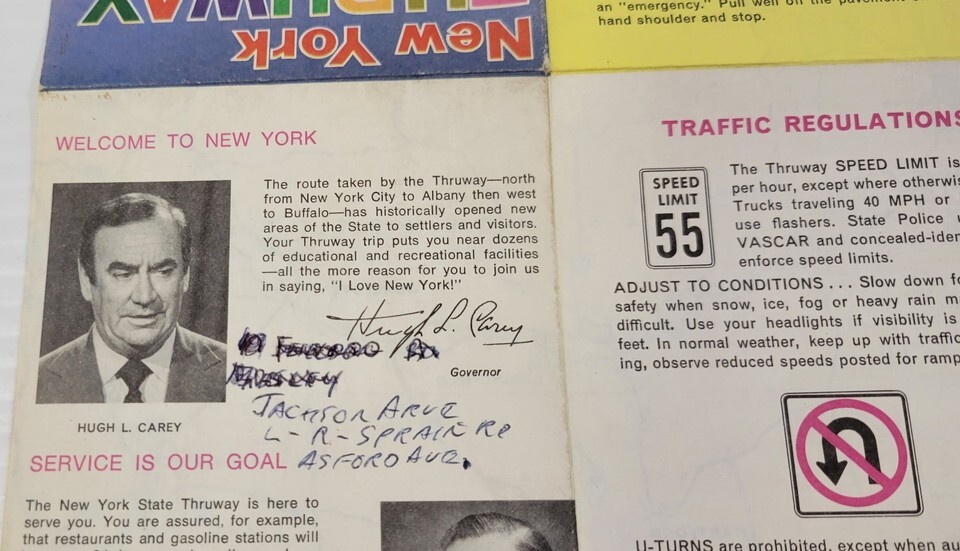 THRUWAY
New York
an "emergency." Pull well off the pavement
hand shoulder and stop.
WELCOME TO NEW YORK
The route taken by the Thruway—north
from New York City to Albany then west
to Buffalo—has historically opened new
areas of the State to settlers and visitors.
Your Thruway trip puts you near dozens
of educational and recreational facilities
—all the more reason for you to join us
in saying, "I Love New York!"
Hugh L. Carey
Governor
JACKSON AVE
L-R-SPRAIN RD
ASFORD AVE.
HUGH L. CAREY
SERVICE IS OUR GOAL
The New York State Thruway is here to
serve you. You are assured, for example,
that restaurants and gasoline stations will
TRAFFIC REGULATIONS
SPEED
LIMIT
55
The Thruway SPEED LIMIT is
per hour, except where otherwis
Trucks traveling 40 MPH or
use flashers. State Police u
VASCAR and concealed-iden
enforce speed limits.
ADJUST TO CONDITIONS . . . Slow down fo
safety when snow, ice, fog or heavy rain m
difficult. Use your headlights if visibility is
feet. In normal weather, keep up with traffic
ing, observe reduced speeds posted for ramp
U-TURNS are prohibited, except when au